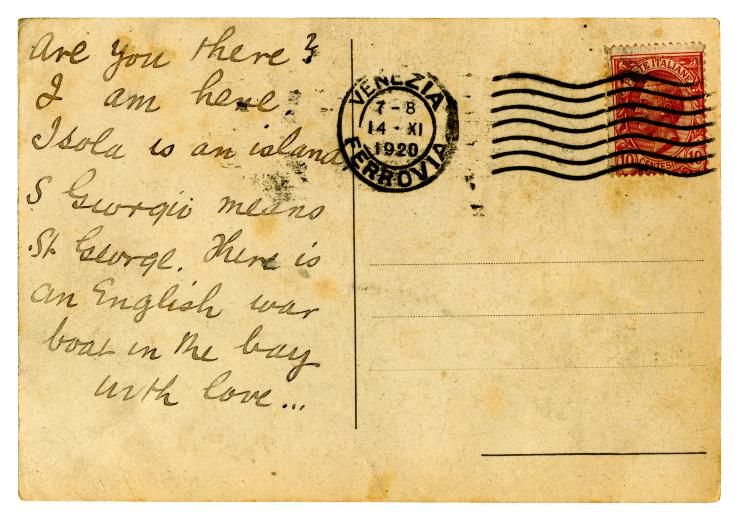 Are you there?
I am here
Isola is an island
S Georgio means
St. George. There is
an English war
boat in the bay
with love...
VENEZIA
7-8
14·XI
1920
FERROVIA
POSTE ITALIANE
10 CENTESIMI 10